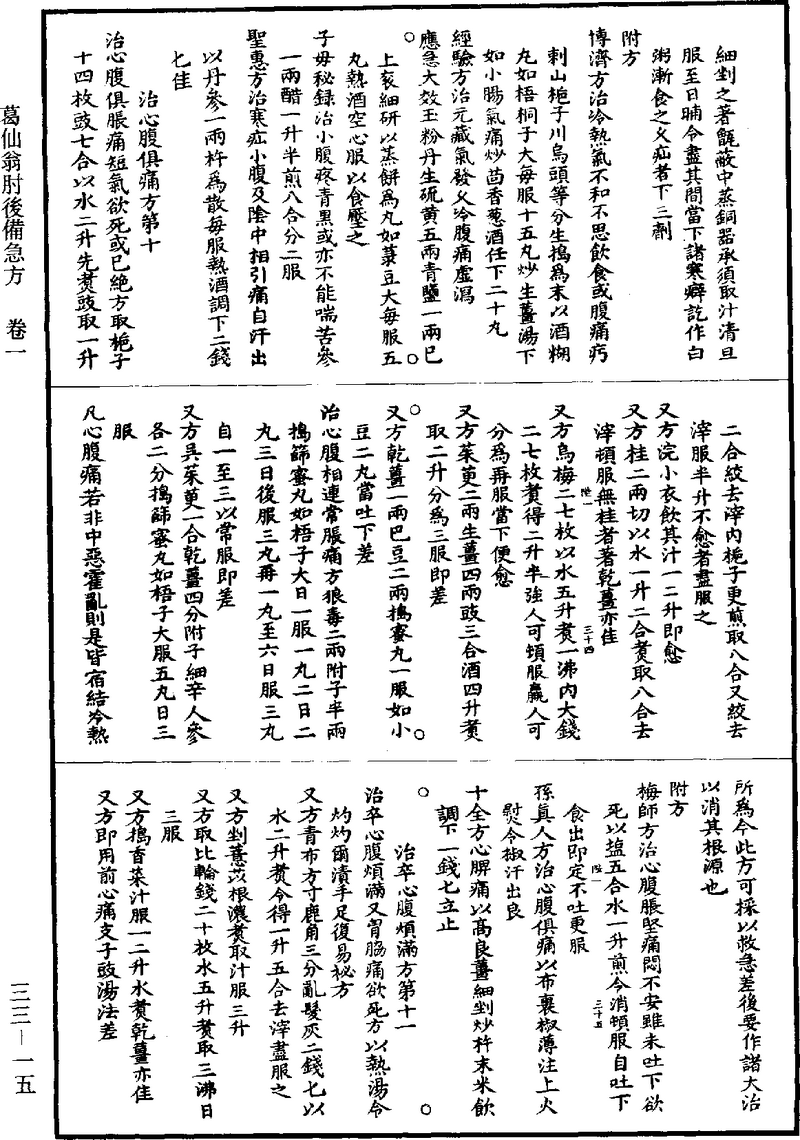 葛仙翁肘後備急方　卷一
三三—一五
細剉之著甑蔽中蒸銅器承須取汁清旦
服至日晡令盡其間當下諸寒癖訖作白
粥漸食之久疝者下三劑
附方
博濟方治冷熱氣不和不思飲食或腹痛㽲
刺山梔子川烏頭等分生搗為末以酒糊
丸如梧桐子大每服十五丸炒生薑湯下
如小腸氣痛炒茴香葱酒任下二十丸
經驗方治元藏氣發久冷腹痛虛瀉
應急大效玉粉丹生硫黄五兩青鹽一兩已
上衮細研以蒸餅為丸如菉豆大每服五
丸熱酒空心服以食壓之
子母秘録治小腹疼青黑或亦不能喘苦參
一兩醋一升半煎八合分二服
聖惠方治寒疝小腹及陰中相引痛自汗出
以丹參一兩杵為散每服熱酒調下二錢
七佳
治心腹俱痛方第十
治心腹俱脹痛短氣欲死或已絶方取梔子
十四枚豉七合以水二升先煑豉取一升
二合絞去滓内梔子更煎取八合又絞去
滓服半升不愈者盡服之
又方浣小衣飲其汁一二升即愈
又方桂二兩切以水一升二合煑取八合去
滓頓服無桂者著乾薑亦佳
陞一　三十四
又方烏梅二七枚以水五升煑一沸内大錢
二七枚煑得二升半強人可頓服羸人可
分為再服當下便愈
又方茱萸二兩生薑四兩豉三合酒四升煑
取二升分為三服即差
又方乾薑一兩巴豆二兩搗蜜丸一服如小
豆二丸當吐下差
治心腹相連常脹痛方狼毒二兩附子半兩
搗篩蜜丸如梧子大日一服一丸二日二
丸三日後服三丸再一丸至六日服三丸
自一至三以常服即差
又方吳茱萸一合乾薑四分附子細辛人參
各二分搗篩蜜丸如梧子大服五丸日三
服
凡心腹痛若非中惡霍亂則是皆宿結冷熱
所為今此方可採以救急差後要作諸大治
以消其根源也
附方
梅師方治心腹脹堅痛悶不安雖未吐下欲
死以塩五合水一升煎令消頓服自吐下
食出即定不吐更服
陞一　三十五
孫真人方治心腹俱痛以布裹椒薄注上火
熨令椒汗出良
十全方心脾痛以高良薑細剉炒杵末米飲
調下一錢七立止
治卒心腹煩滿方第十一
治卒心腹煩滿又胷脇痛欲死方以熱湯令
灼灼爾漬手足復易祕方
又方青布方寸鹿角三分亂髮灰二錢七以
水二升煑令得一升五合去滓盡服之
又方剉薏苡根濃煑取汁服三升
又方取比輪錢二十枚水五升煑取三沸日
三服
又方搗香菜汁服一二升水煑乾薑亦佳
又方即用前心痛支子豉湯法差